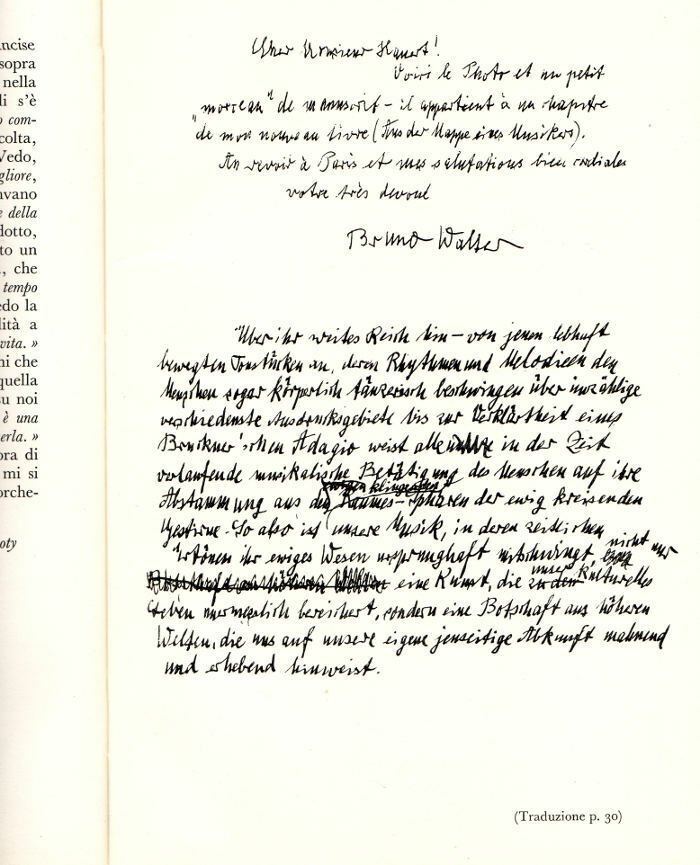 ncise
sopra
nella
li s'è
o com-
colta,
Vedo,
gliore,
nvano
e della
dotto,
to un
., che
tempo
edo la
lità a
vita. »
ni che
quella
su noi
è una
erla. »
ora di
mi si
orche-
oty
Cher Monsieur
Voici le Photo et un petit
„morceau" de manuscrit – il appartient à un chapitre
de mon nouveau livre (Aus der Mappe eines Musikers).
Au revoir à Paris et mes salutations bien cordiales
votre très devoué
Bruno Walter
Über ihr weites Reich hin – von jenen lebhaft
bewegten Tonstücken an, deren Rhythmen und Melodieen den
Menschen sogar körperlich tänzerisch beschwingen über unzählige
verschiedenste Ausdrucksgebiete bis zur Verklärtheit eines
Bruckner'schen Adagio weist alle in der Zeit
verlaufende musikalische Betätigung des Menschen auf ihre
Abstammung aus den ewigen klingenden Sphären der ewig kreisenden
Gestirne. So also ist unsere Musik, in deren zeitlichen
Ertönen ihr ewiges Wesen ursprunghaft mitschwingt, nicht nur
eine Kunst, die unser kulturelles
Leben unermesslich bereichert, sondern eine Botschaft aus höheren
Welten, die uns auf unsere eigene jenseitige Abkunft mahnend
und erhebend hinweist.
(Traduzione p. 30)